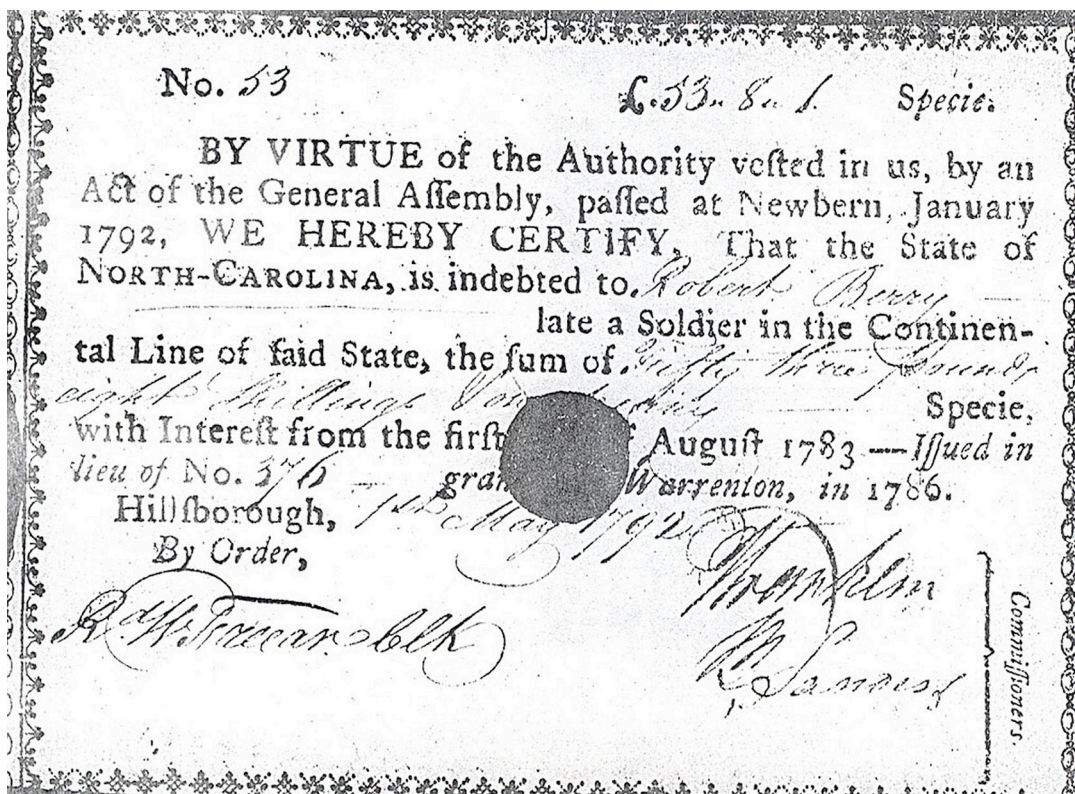 No. 53 £.53„ 8„ 1. Specie.
BY VIRTUE of the Authority veſted in us, by an
Act of the General Aſſembly, paſſed at Newbern, January
1792, WE HEREBY CERTIFY, That the State of
NORTH-CAROLINA, is indebted to Robert Berry
late a Soldier in the Continen-
tal Line of ſaid State, the ſum of Fiftty three pounds
eight Shillings One penny Specie,
with Intereſt from the firſt of Auguſt 1783 —Iſſued in
lieu of No. 376 — gran Warrenton, in 1786.
Hillſborough, 1st May 1792
By Order,
Franklin
Clk
Commiſſioners.